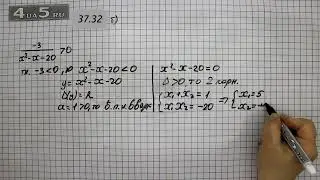 4ua5.ru
37.32 б)
-3/(x²-x-20) > 0
т.к. -3<0, то x²-x-20<0
y = x²-x-20
D(y) = R
a = 1 > 0, то в. п. и вверх
x²-x-20=0
D>0, то 2 корн.
{x₁+x₂ = 1
{x₁x₂ = -20 => {x₁=5
{x₂=-